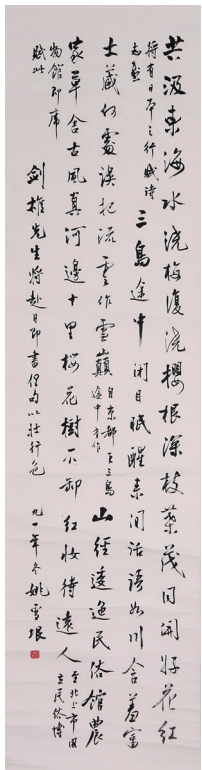 共汲东海水浇梅复浇樱根深枝叶茂同开好花红
将有日本之行赋诗
志感 三岛途中闭目眠醒来闻话语如川含羞富
士藏何处误把流云作雪巅 自京都至三岛
途中未作 山经逶迤民俗馆农
家草舍古风真河边十里樱花树不卸红妆待远人 于北上市国
立民俗博
物馆即席
赋此
剑雄先生将赴日即书俚句以壮行色
九一年冬姚雪垠